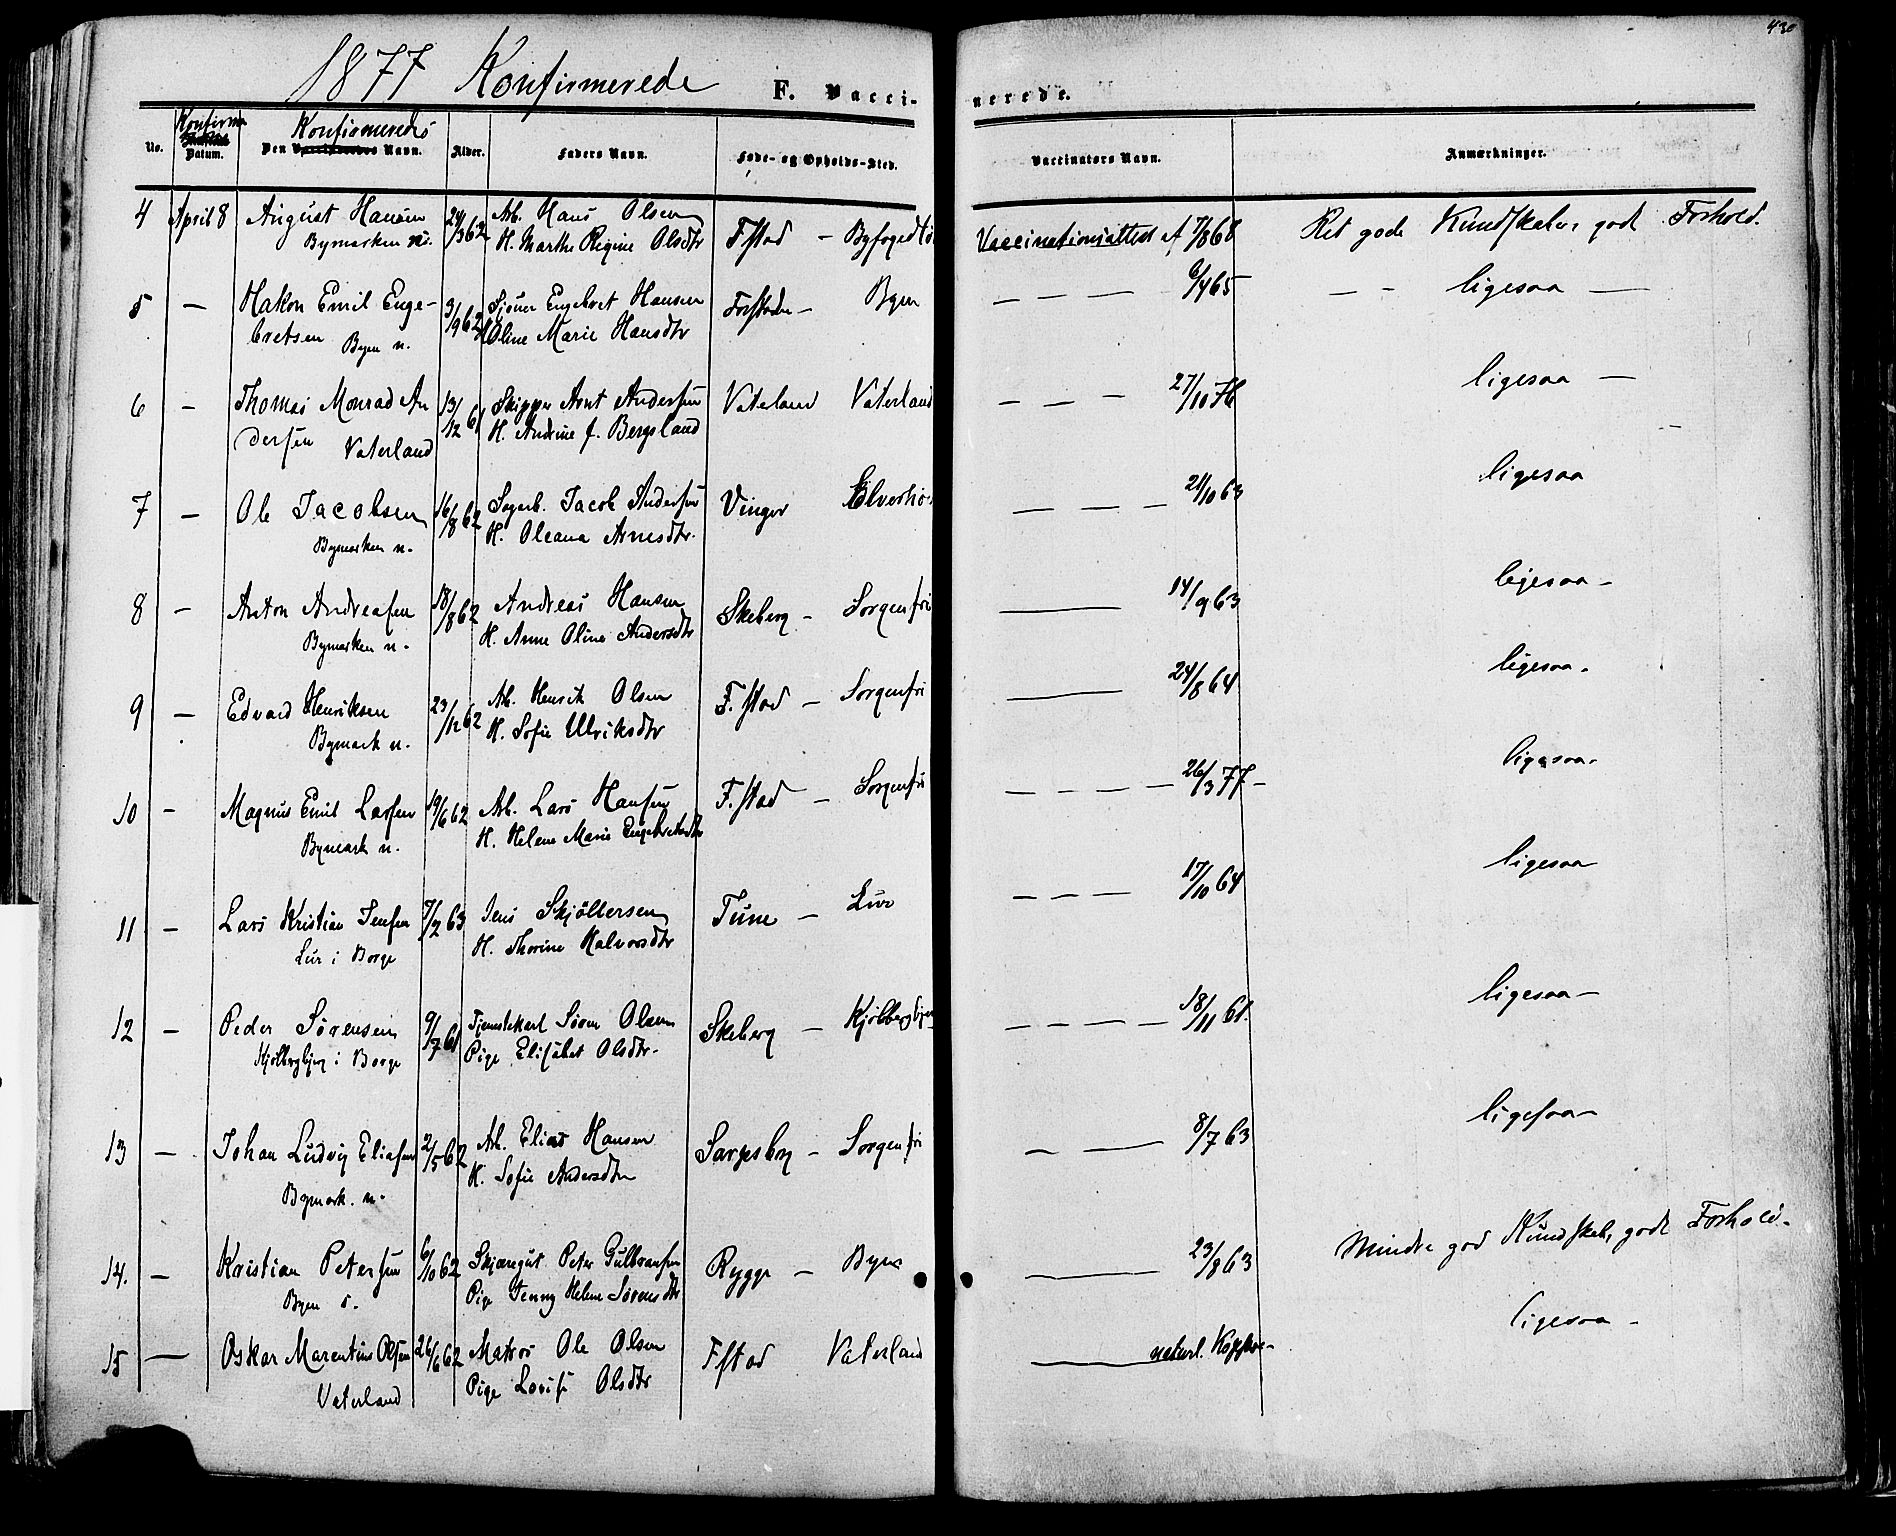 430
1877 Konfirmerede F. Vacci-nerede.
No. Konfirma Datum. Konfirmeredes Den Vaccineredes Navn. Alder. Faders Navn. Føde- og Opholds-Sted. Vaccinators Navn. Anmærkninger.
4 April 8 August Hansen 24/3 62 Arb. Hans Olsen Fstad - Vaccinationsattest af 7/8 68 Ret gode Kundskaber, godt Forhold.
Bymarken n. H. Marthe Regine Olsdtr
5 — Hakon Emil Enge- 3/9 62 Engebret Hansen Forstaden - Byen — — — 6/4 65 — - ligesaa —
bretsen Byen n. Oline Marie Hansdtr
6 - Thomas Monrad An 13/12 61 Skipper Arnt Andersen Vaterland Vaterland — — — 27/10 76 ligesaa —
dersen Vaterland H. Andrine f. Bergsland
7 - Ole Jacobsen 16/8 62 Jacob Andersen Vinger — — — 21/10 63 ligesaa
Bymarken n. H. Oleana Arnesdtr.
8 - Anton Andreasen 18/8 62 Andreas Hansen Skeberg - Sorgenfri — 14/9 63 ligesaa -
Bymarken n. H. Anne Oline Andersdtr
9 — Edvard Henriksen 23/12 62 Arb. Henrik Olsen F.stad - Sorgenfri — 24/8 64 ligesaa.
Bymark n. H. Sofie Ulriksdtr
10 - Magnus Emil Larsen 19/6 62 Arb. Lars Hansen F.stad - Sorgenfri — — — — 26/3 77 - ligesaa.
Bymark n. H. Helene Marie Engebretsdtr
11 - Lars Kristian Jensen 7/2 63 Jens Skjöltersen Tune - Lur — — — 17/10 64 ligesaa
Lur i Borge H. Thorine Halvorsdtr
12 - Peder Sörensen 9/7 61 Tjenestekarl Sören Olsen Skeberg - — — — — 18/11 61. ligesaa -
i Borge Pige Elisabet Olsdtr.
13 — Johan Ludvig Eliasen 2/5 62 Arb. Elias Hansen Sarpsborg - Sorgenfri — — 8/7 63 ligesaa -
Bymark. n. H. Sofie Andersdtr
14. — Kristian Petersen 6/10 62 Peter Gulbransen Rygge - Byen — 23/8 63 Mindre god Kundskab, godt Forhold.
Byen Pige Jenny Helene Sörensdtr
15 — Oskar Marentius Olsen 26/6 62 Matros Ole Olsen Fstad Vaterland — naturl. Kopper - ligesaa -
Vaterland Pige Lovise Olsdtr